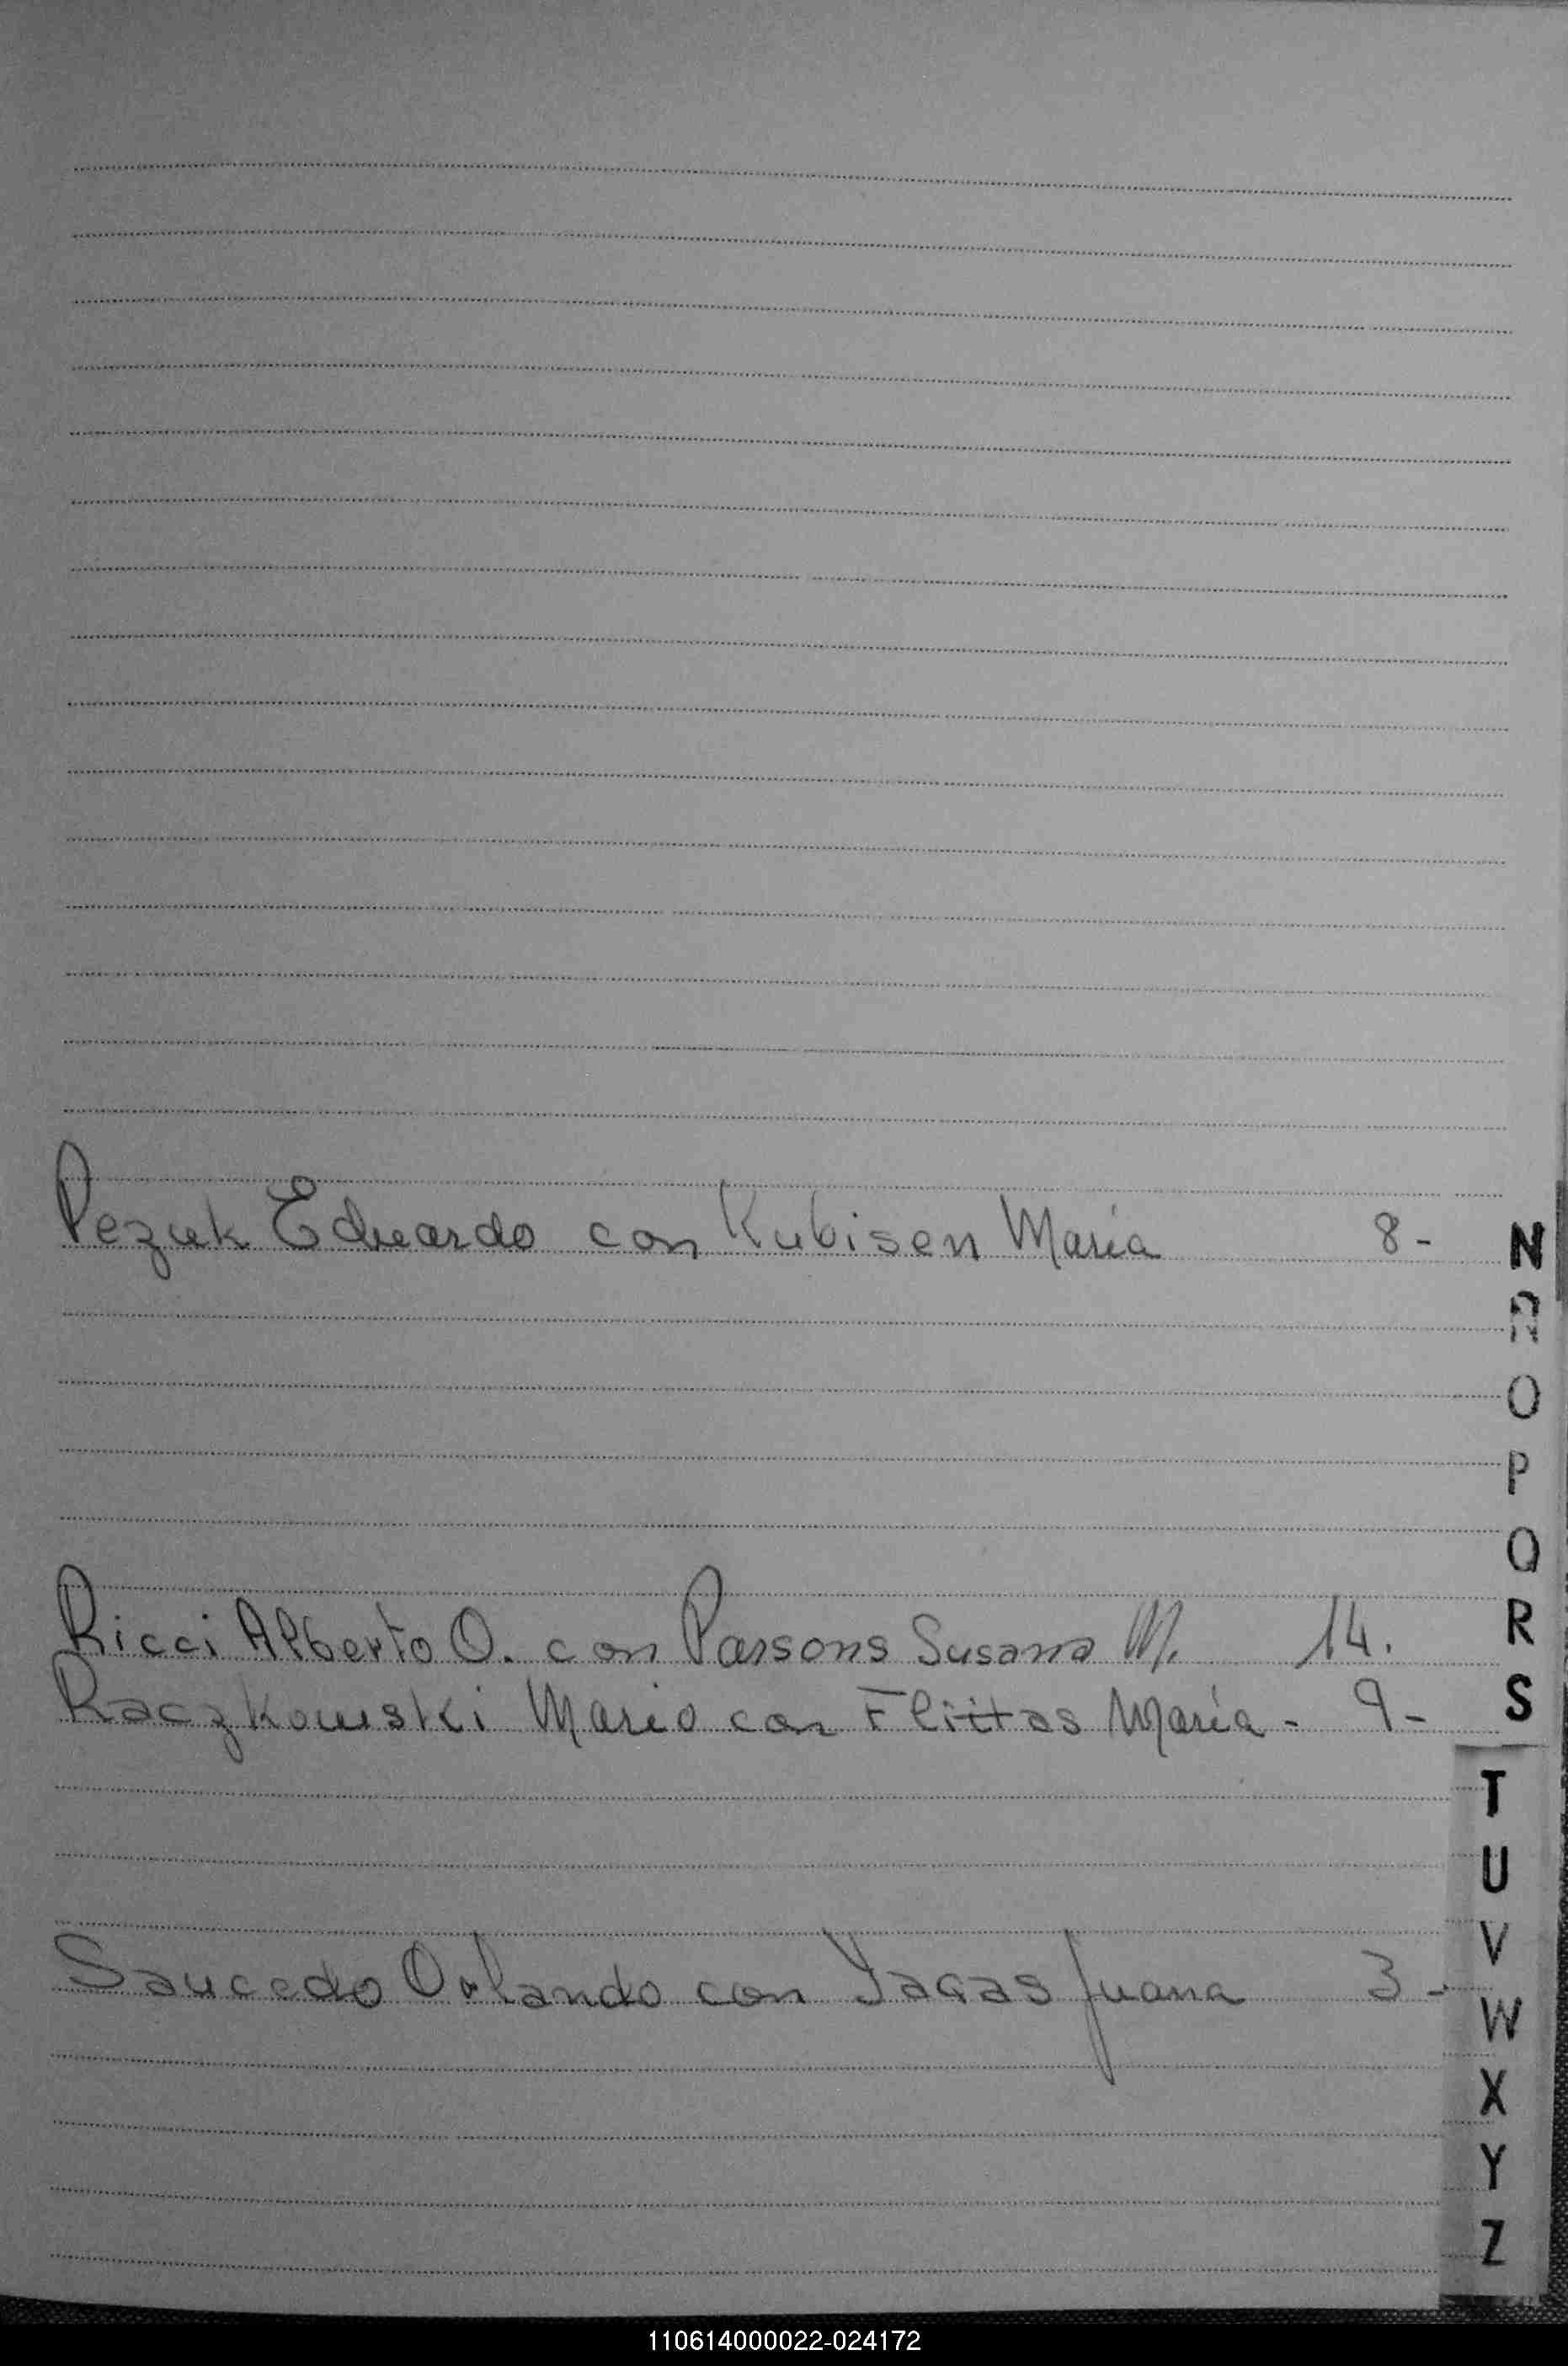 Pezuk Eduardo con Kubisen María 8-
N
Ñ
O
P
Q
Ricci Alberto O. con Parsons Susana M. 14.
R
Raczkowski Mario con María - 9-
S
T
U
V
Saucedo Orlando con Juana 3-
W
X
Y
Z
110614000022-024172